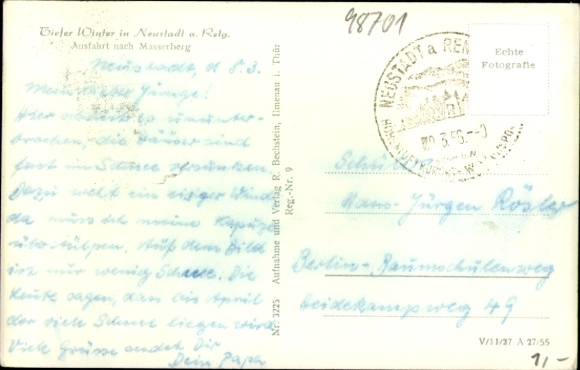 Tiefer Winter in Neustadt a. Relg.
Ausfahrt nach Masserberg
Neustadt, d 8.3.
Mein lieber Junge!
Hier schneit es ununter-
brochen, die Häuser sind
fast im Schnee versunken.
Dazu weht ein eisiger Wind,
da muss ich meine Kapuze
überstülpen. Auf dem Bild
ist nur wenig Schnee. Die
Leute sagen, dass bis April
der viele Schnee liegen wird
Viele Grüsse sendet Dir
Dein Papa
Nr. 3225 Aufnahme und Verlag R. Bechstein, Ilmenau i. Thür
Reg.-Nr. 9
98701
NEUSTADT a REN
Echte
Fotografie
Schüler
Hans-Jürgen Rösler
Berlin-Baumschulenweg
Heidekampweg 49
V/11/27 A 27/55
1,-